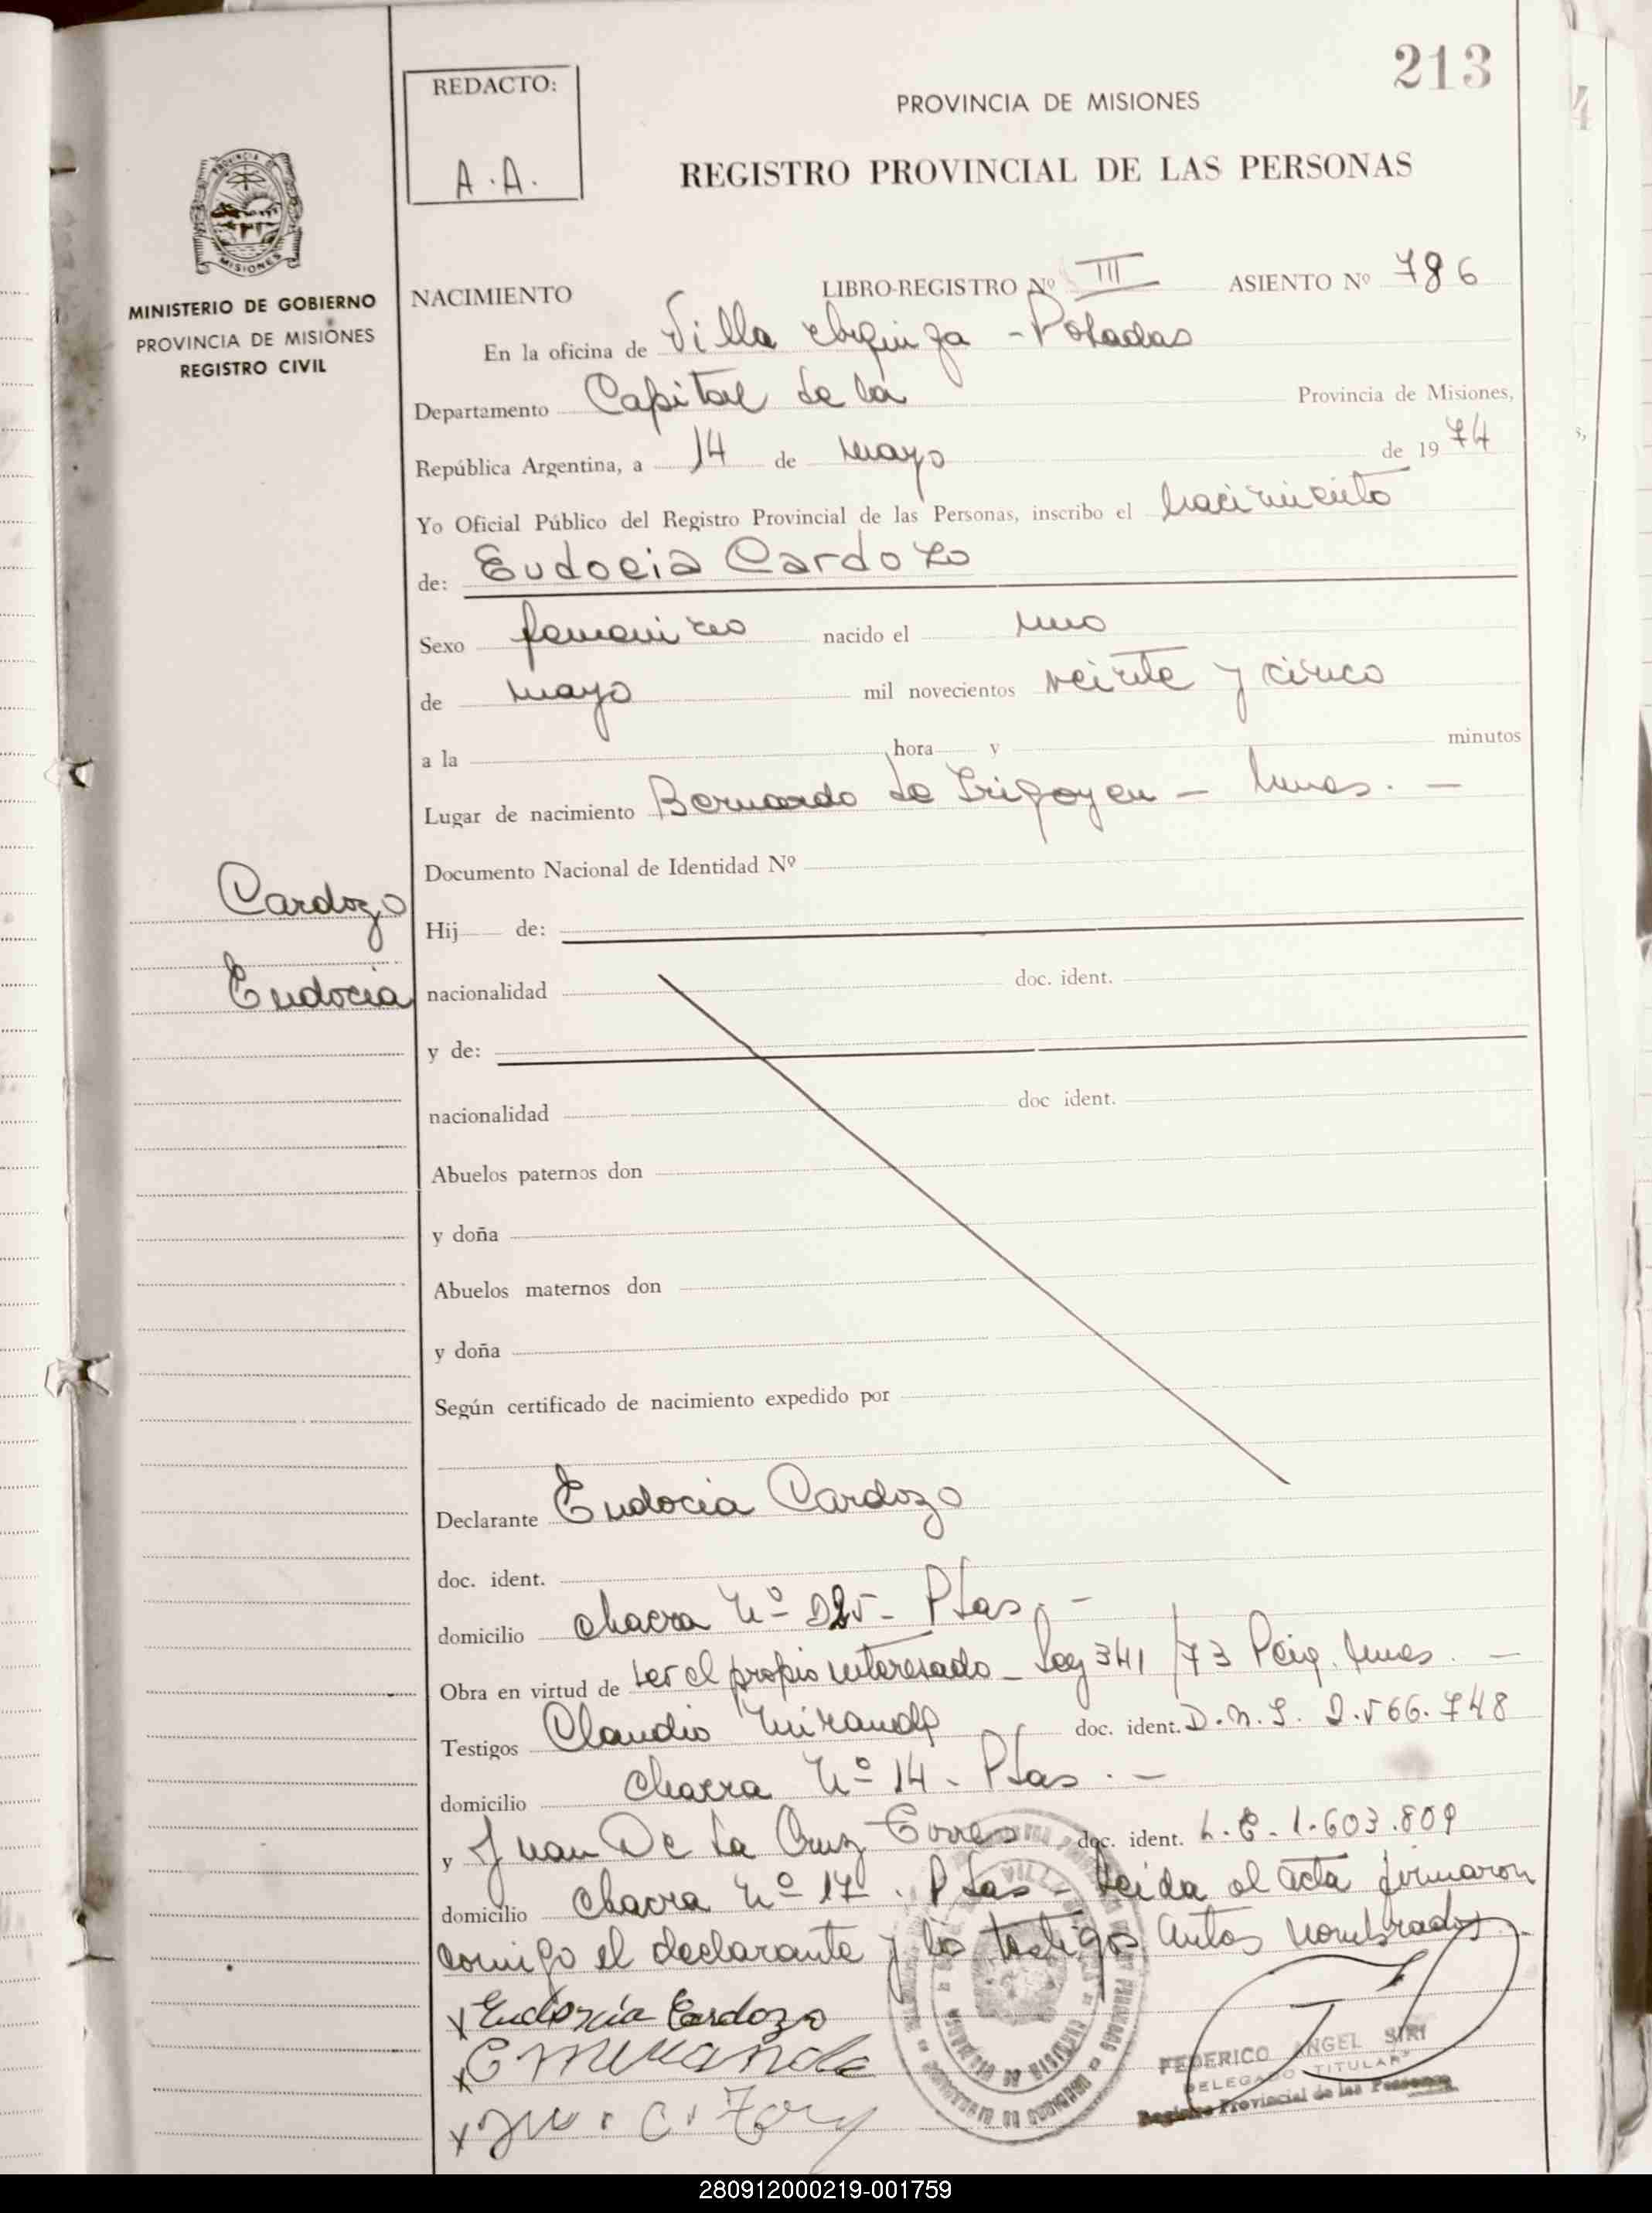 213
REDACTO:
A.A.
PROVINCIA DE MISIONES
REGISTRO PROVINCIAL DE LAS PERSONAS
PROVINCIA DE
MISIONES
MINISTERIO DE GOBIERNO
PROVINCIA DE MISIONES
REGISTRO CIVIL
NACIMIENTO LIBRO-REGISTRO Nº III ASIENTO Nº 786
En la oficina de Villa Urquiza - Posadas
Departamento Capital de la Provincia de Misiones,
República Argentina, a 14 de mayo de 1974
Yo Oficial Público del Registro Provincial de las Personas, inscribo el nacimiento
de: Eudocia Cardozo
Sexo femenino nacido el uno
de mayo mil novecientos veinte y cinco
a la hora y minutos
Lugar de nacimiento Bernardo de Irigoyen - Mnes. -
Documento Nacional de Identidad Nº
Cardozo
Eudocia
Hij de:
nacionalidad doc. ident.
y de:
nacionalidad doc ident.
Abuelos paternos don
y doña
Abuelos maternos don
y doña
Según certificado de nacimiento expedido por
Declarante Eudocia Cardozo
doc. ident.
domicilio chacra Nº - Ptas. -
Obra en virtud de ser el propio interesado - Ley 341/73 Mnes. -
Testigos Claudio Miranda doc. ident. D.N.I. 2.566.748
domicilio chacra Nº 14 - Ptas. -
y Juan De La Cruz doc. ident. L.E. 1.603.809
domicilio chacra Nº 17. Ptas - Leida el acta firmaron
conmigo el declarante y los testigos antes nombrados.
x Eudocia Cardozo
x C Miranda
x
FEDERICO ANGEL SIRI
DELEGADO TITULAR
Registro Provincial de las Personas
280912000219-001759